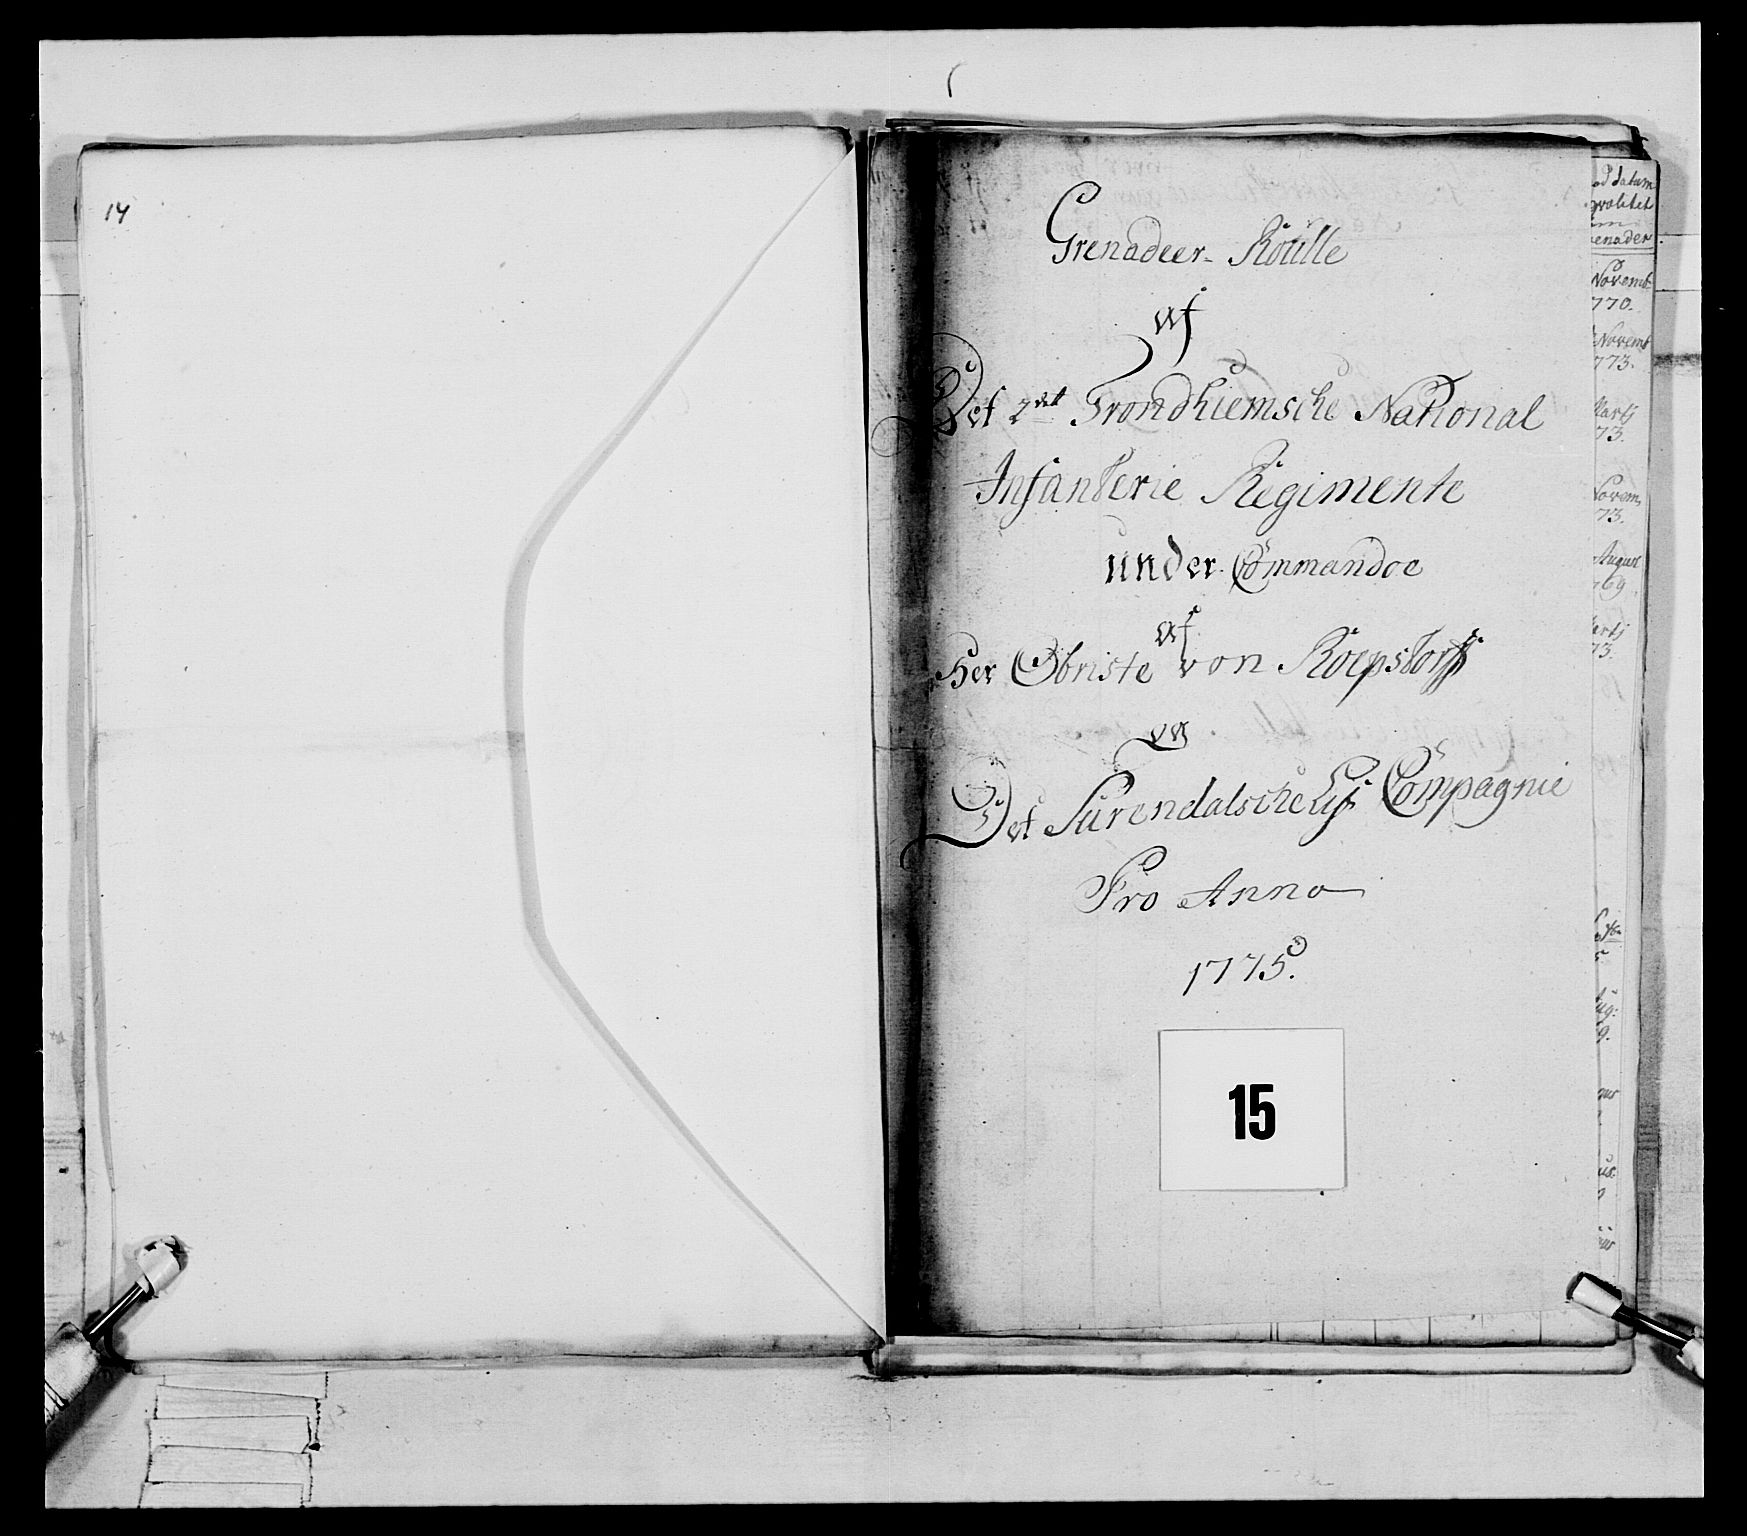 14
Grenadeer-Roulle
af
Det 2det Trondhiemsche National
Infanterie Regimente
under Commandoe
af
Her Obriste von Roepstorff
og
Det Surendalsche Compagnie
Pro Anno
1775.
15
datum
qvalitet
Novemb
770.
Novemb
773.
Martj
73.
Novem,
73.
August
69.
73.